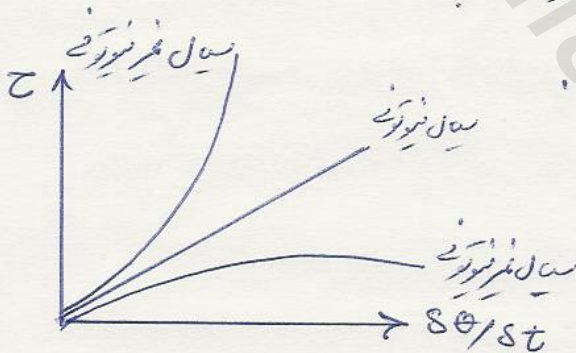 سیال غیر نیوتونی
τ
سیال نیوتونی
سیال غیر نیوتونی
δθ/δt